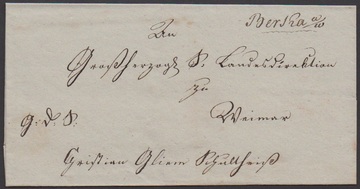 Berka a/o
An
Großherzogl. S. Landesdirektion
zu
Weimar
G. d. S.
Cristian Gliem Schultheiß